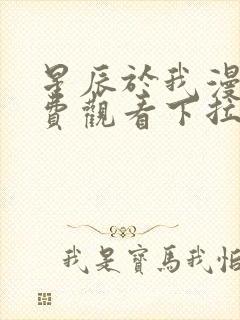 星辰於我漫
費觀看下拉
我是寶馬我怕